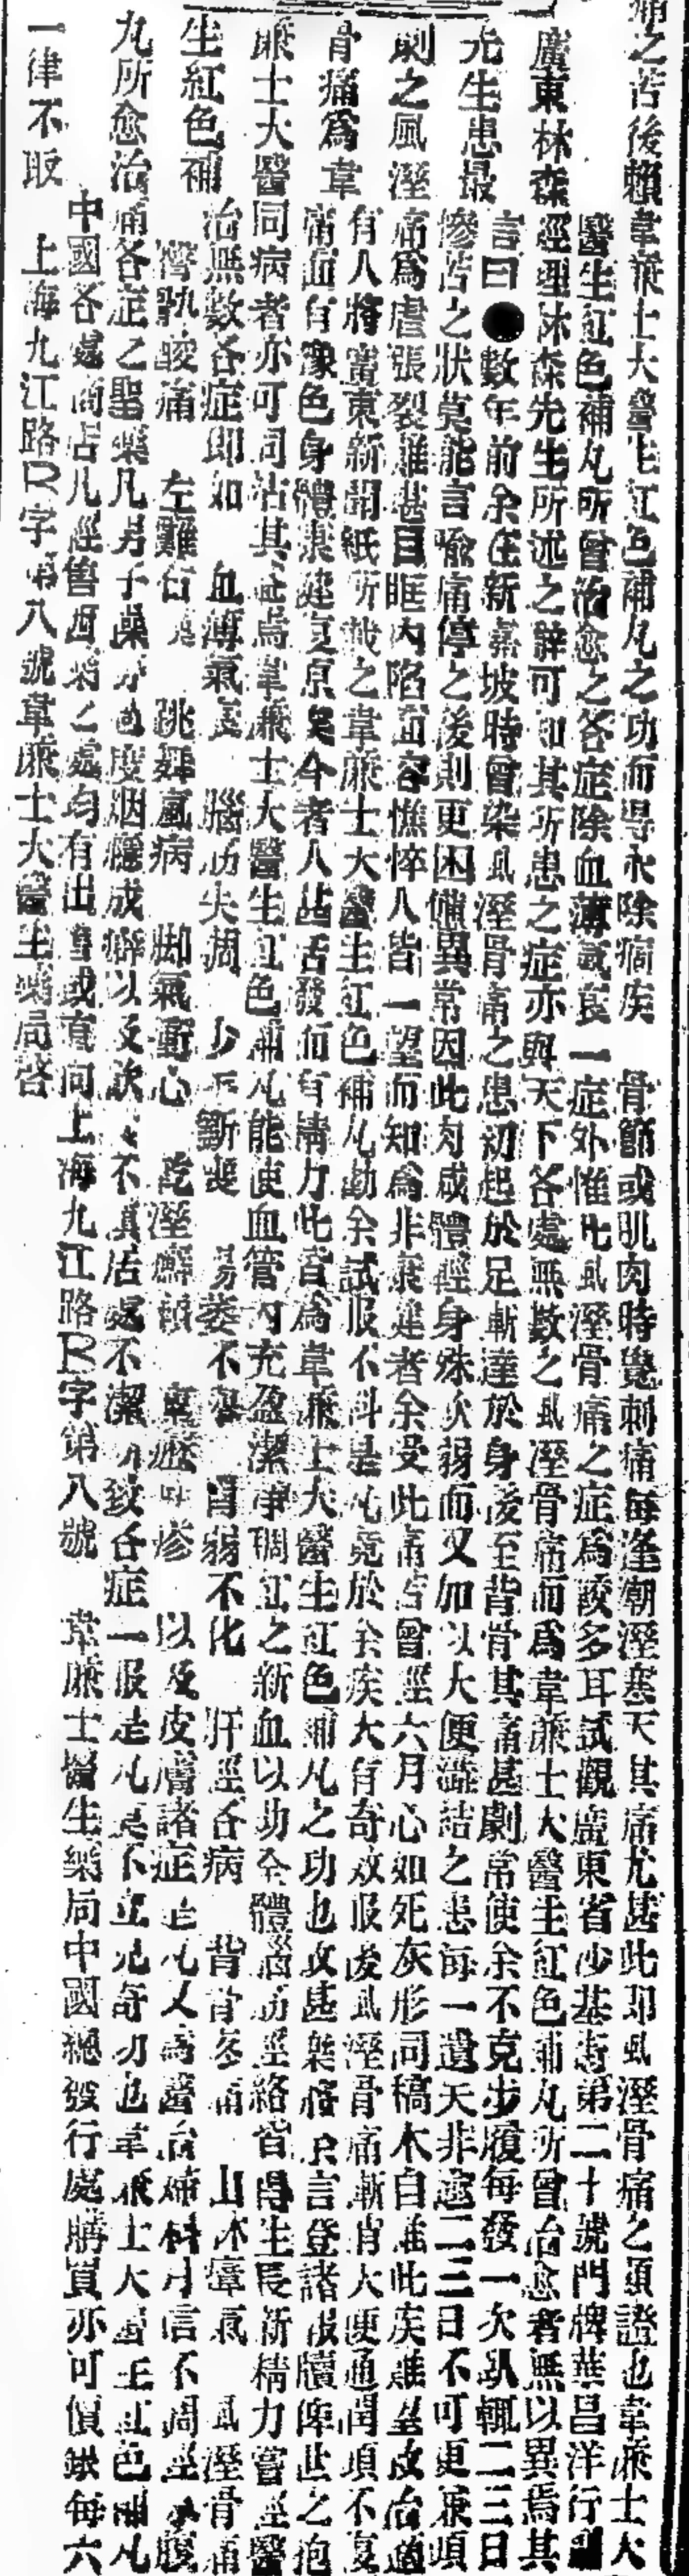 痛之苦後賴韋廉士大醫生紅色補丸之功而得永除痼疾 骨節或肌肉時覺刺痛每逢潮溼寒天其痛尤甚此即風溼骨痛之顯證也韋廉士大
醫生紅色補丸所曾治愈之各症除血薄氣衰一症外惟此風溼骨痛之症為較多耳試觀廣東省沙基街第二十號門牌華昌洋行
廣東林森經理林森先生所述之辭可知其所患之症亦與天下各處無數之風溼骨痛而為韋廉士大醫生紅色補丸所曾治愈者無以異焉其
言曰●數年前余在新嘉坡時曾染風溼骨痛之患初起於足漸達於身後至背脊其痛甚劇常使余不克步履每發一次臥輒二三日
先生患最慘苦之狀莫能言喻痛停之後則更困憊異常因此肉咸體輕身殊欠弱而又加以大便澁結之患每一遺天非逾二三日不可更兼頭
劇之風溼痛為虐張裂難甚目眶內陷面容憔悴人皆一望而知為非康健者余受此痛苦曾經六月心如死灰形同稿木自維此疾難望改治適
骨痛為韋有人將廣東新聞紙所載之韋廉士大醫生紅色補丸勸余試服不料是丸竟於余疾大有奇效服後風溼骨痛漸消大便通潤頭不復
痛血有潑色身體康健復原矣今者人甚活發而有精力此皆為韋廉士大醫生紅色補丸之功也故甚樂將余言登諸報牘俾世之抱
廉士大醫同病者亦可同沾其益焉韋廉士大醫生紅色補丸能使血管內充盈潔淨稠紅之新血以助全體腦筋經絡皆得生長新精力嘗經醫
生紅色補治無數各症即如 血薄氣衰 腦筋失調 少年斲喪 陽萎不舉 胃弱不化 肝經各病 背脊多痛 山林瘴氣 風溼骨痛
臂執酸痛 左癱右瘓 跳舞風病 脚氣衝心 乾溼癬 以及皮膚諸症 是丸又為醫治婦科月信不調經
丸所愈治痛各症之聖藥凡男子 烟癮成癖以及飲食不 居處不潔以致各症一服是丸莫不立見奇功也韋廉士大醫生紅色補丸
中國各處商店凡經售西藥之處均有出售或直向上海九江路R字第八號 韋廉士醫生藥局中國總發行處購買亦可價銀每六
一律不取 上海九江路R字第八號韋廉士大醫生藥局啓